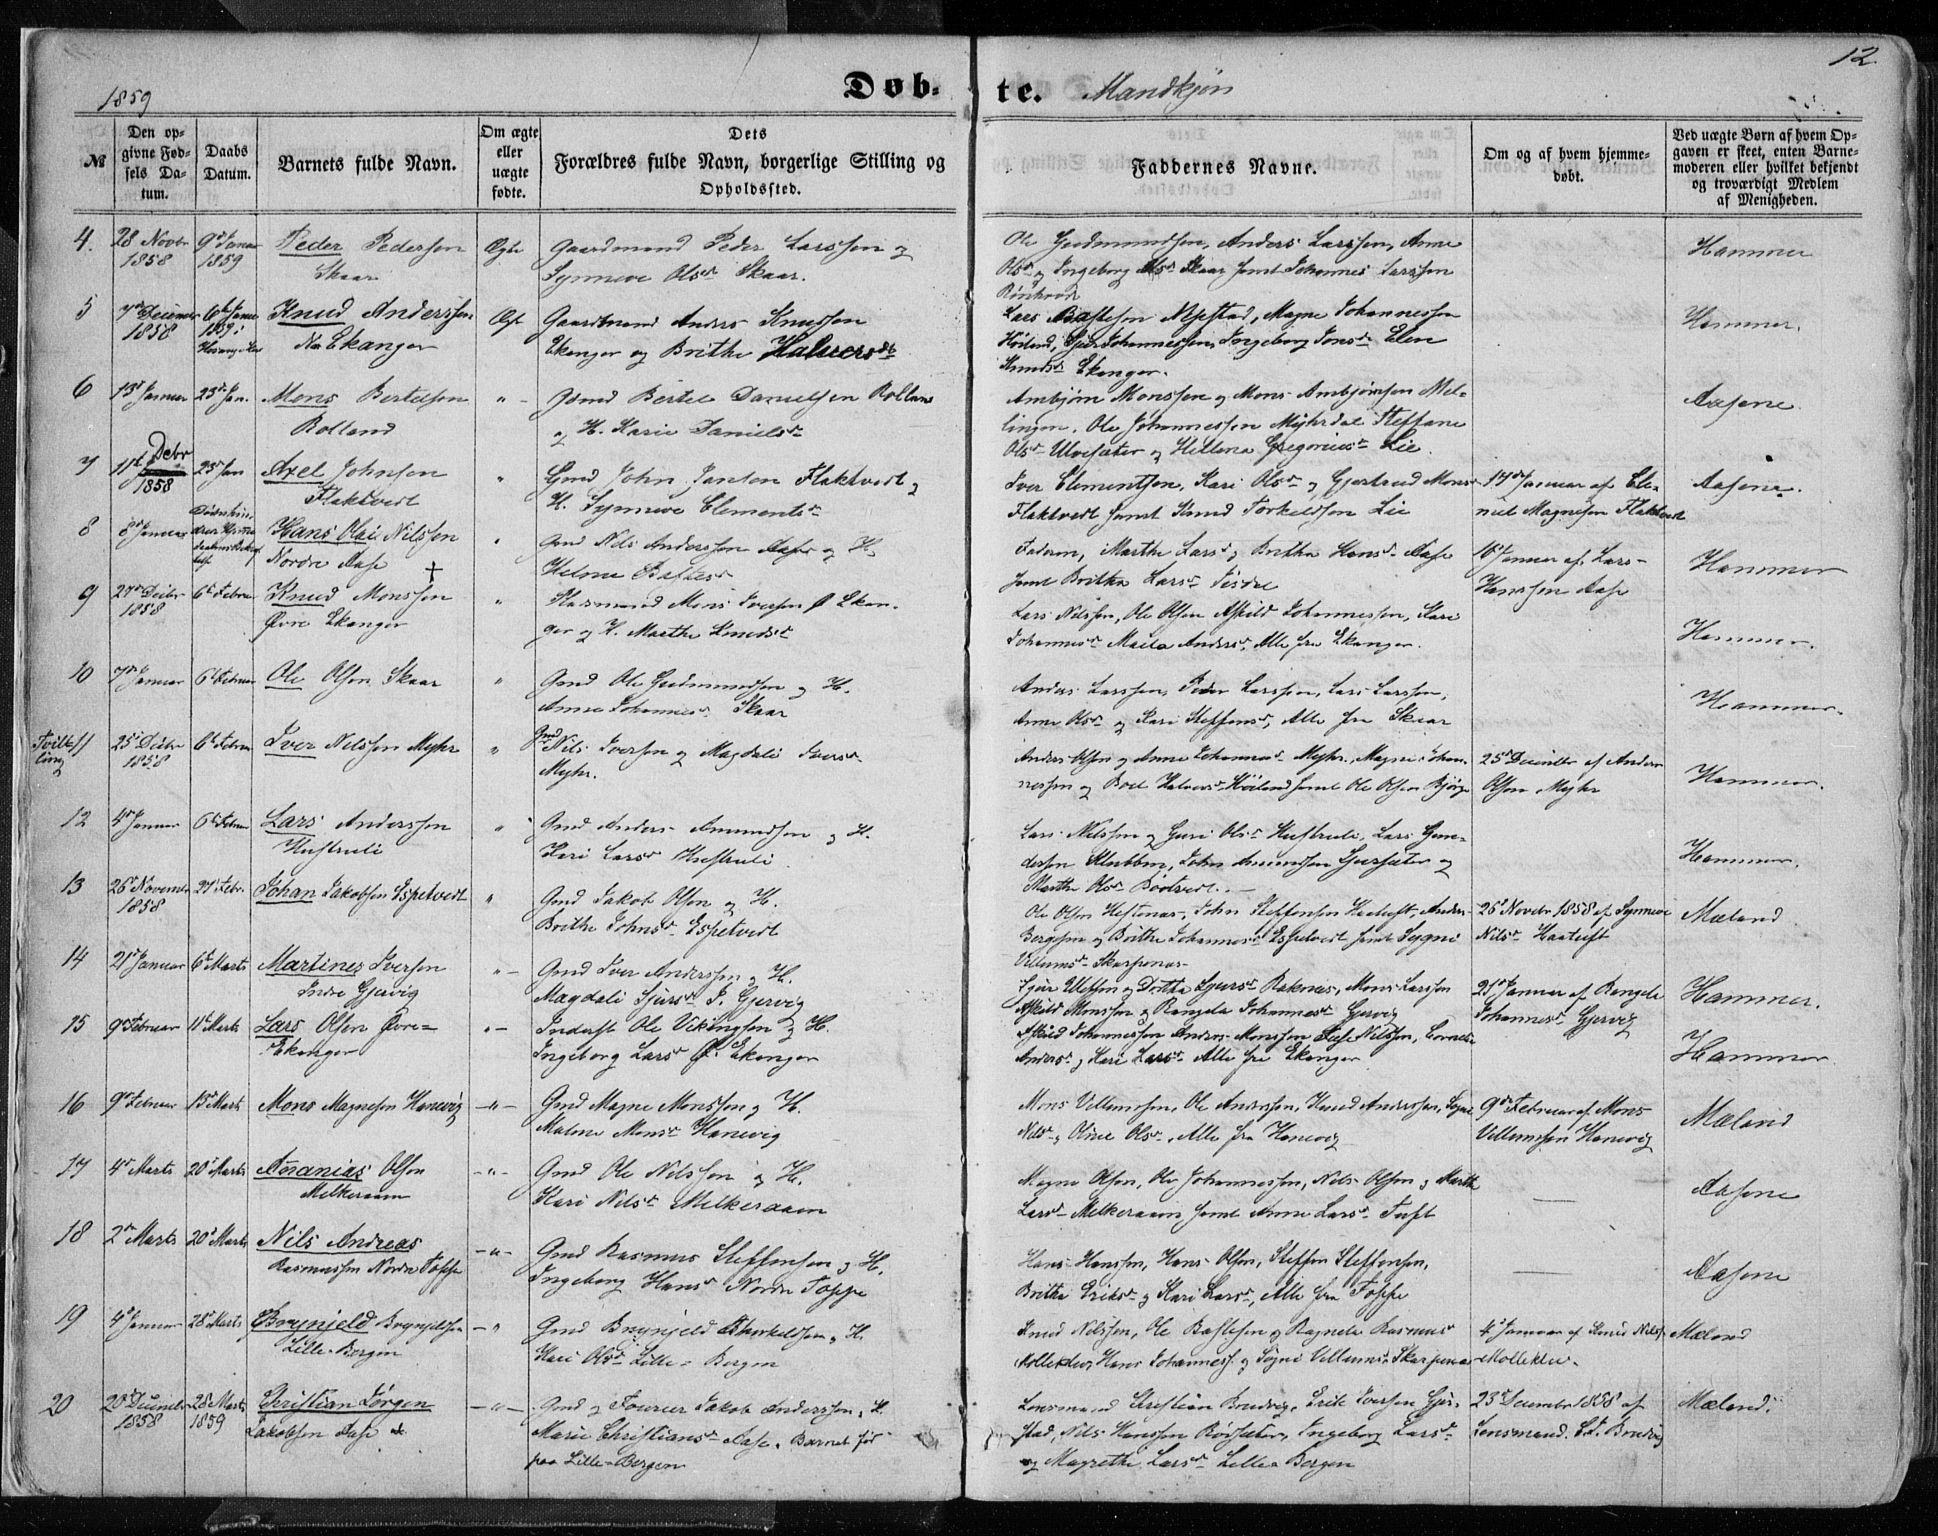 12
1859
Døb-
te. Mandkjøn
№
Den op-
givne Fød-
sels Da-
tum.
Daabs
Datum.
Barnets fulde Navn.
Om ægte
eller
uægte
fødte.
Dets
Forældres fulde Navn, borgerlige Stilling og
Opholdssted.
Faddernes Navne.
Om og af hvem hjemme-
døbt.
Ved uægte Børn af hvem Op-
gaven er skeet, enten Barne-
moderen eller hvilket bekjendt
og troværdigt Medlem
af Menigheden.
4. 28 Novbr 1858
9de Januar 1859
Peder Pederson
Skaar
Ægte
Gaardmand Peder Larssen og
Synneve Olsdr Skaar.
Ole Gudmundsen, Anders Larssen, Anne
Olsdr og Ingeborg Olsdr Skaar samt Johannes Larssen
Hammer
5 7de Decemer 1858
6te Janua 1859
Knud Anderssen
Ekanger
Ægt
Gaardmand Anders Knudsen
Ekanger og Brithe Halversdtr
Lars Mjøstad, Magne Johannessen
Høiland, Johannessen, Ingeborg Jonsdr Elen
Knudsdr Ekanger.
Hammer.
6 13de Januar
23de Jan.
Mons Bertelsen
Rolland
Gmd Bertel Danielsen Rolland
og H. Karie Danielsdr
Ambjørn Monssen og Mons Ambjørnsen Mel-
lingen, Ole Johannessen Myhrdal Steffane
Olsdr Ulvesæter og Hellena Gregoriusdr Lie.
Aasene.
7 11te Debr 1858
23de Jan
Axel Johnsen
Flaktvedt
Gmd John Jansen Flaktvedt og
H. Synneve Clementsdr
Iver Clementsen, Kari Olsdr og Gjertrud Monsdr
Flaktvedt samt Knud Torkeldsen Lie
17de Januar af Cle-
met Magnesen Flaktvedt
Aasene.
8 8de Januar
Hans Olai Nilsson
Nordre Aase +
Gmd Nils Anderssen Aase og H.
Helene
Faderen, Marthe Larsdr og Britha Hansdr Aase
samt Britha Larsdr
10 Januar af Lars
Hanssen Aase
Hammer
9 27de Decbr 1858
6te Febru
Knud Monssen
Øvre Ekanger
Huusmand Mons Iversen Ø Ekan-
ger og H. Marthe Knudsdr
Lars Nilssen, Ole Olsen Askild Johannessen, Kari
Johannesdr Maila Andersdr, Alle fra Ekanger.
Hammer.
10 7de Januar
6te Februar
Ole Olsen Skaar
Gmd Ole Gudmundsen og H.
Anne Johannesdr Skaar
Anders Larssen, Peder Larssen, Lars Larssen,
Anne Olsdr og Kari Steffensdr, Alle fra Skaar
Hammer.
Tvilling
11 25de Decbr 1858
6te Febru
Iver Nilssen Myhr
Gmd Nils Iversen og Magdali Iversdr
Myhr.
Anders Olsen og Anne Johannesdr Myhr, Magne Johan-
nessen og Boel Halversdr Høiland samt Ole Olsen Bjørge
25de December af Anders
Olsen Myhr
Hammer.
12 4de Januar
6te Februar
Lars Anderssen
Hustruli
Gmd Anders Amundsen og H.
Kari Larsdr Hustruli
Lars Nilssen og Guri Olsdr Hustruli, Lars Gun-
dersen Klubben, John Amundsen og
Marthe Olsdr Bødtvedt.
Hammer.
13 26de November 1858
27 Febr.
Johan Jakobsen Espetvedt
Gmd Jakob Olsen og H.
Brithe Johnsdr Espetvedt
Ole Olsen Hestenæs, John Steffensen Haatuft, Anders
Bergesen og Brithe Johannesdr Espetvedt samt Sygni
Villumsdr Skarpenæs
26de Novbr 1858 af Synneve
Nilsdr Haatuft
Mæland
14 21de Januar
6te Marts
Martines Iversen
Indre Gjervig
Gmd Iver Anderssen og H.
Magdali Sjursdr I. Gjervig
Ditta Sjursdr Raknes, Mons Larssen
Askild Monssen og Rangela Johannesdr Gjervig
21de Januar af Rangela
Johannesdr Gjervig
Hammer.
15 9de Februar
11te Marts
Lars Olsen Øvre-
Ekanger
Inderst Ole Vikingsen og H.
Ingeborg Larsdr Ø. Ekanger
Askild Johannessen Anders Monssen Nilssen,
Andersdr og Kari Larsdr, Alle fra Ekanger
Hammer
16 9de Februar
13de Marts
Mons Magnesen Hanevig
Gmd Magne Monssen og H.
Malene Monsdr Hanevig
Mons Villumsen, Ole Anderssen, Knud Anderssen, Sygni
Nilsdr og Oline Olsdr, Alle fra Hanevig
9de Februar af Mons
Villumsen Hanevig
Mæland
17 4de Marts
20de Marts
Ananias Olsen
Melkeraaen
Gmd Ole Nilssen og H.
Kari Nilsdr Melkeraaen
Magne Olsen, Ole Johannessen, Nils Olsen og Marthe
Larsdr Melkeraaen samt Anne Larsdr Tuft
Aasene
18 2den Marts
20de Marts
Nils Andreas
Rasmussen Nordre Toppe
Gmd Rasmus Steffensen og H.
Ingeborg Hansdr Nordre Toppe
Hans Hanssen, Hans Olsen, Steffen Steffensen,
Britha Eriksdr og Kari Larsdr, Alle fra Toppe
Aasene
19 4de Januar
28de Marts
Brynjeld Brynjelsen
Lille-Bergen
Gmd Brynjeld Thorkeldsen og H.
Kari Olsdr Lille-Bergen
Knud Nilssen, Ole Bastesen og Ragnela Rasmusdr
Mollekleiv, Hans Johanness. og Sygni Villumsdr Skarpenæs
4de Januar af Knud Nilss.
Mollekleiv.
Mæland
20 20de December 1858
28 Marts 1859
Christian Jørgen
Jakobsen Aase
Gmd og Fourer Jakob Anderssen og H.
Marie Christiansdr Aase. Barnet født
paa Lille-Bergen
Lensmand Christian Bredvig, Erik Iversen
Nils Hanssen Rødsæter, Ingeborg Larsdr
og Magrethe Larsdr Lille-Bergen
23de December 1858 af
Lensmand. Bredvig
Mæland.